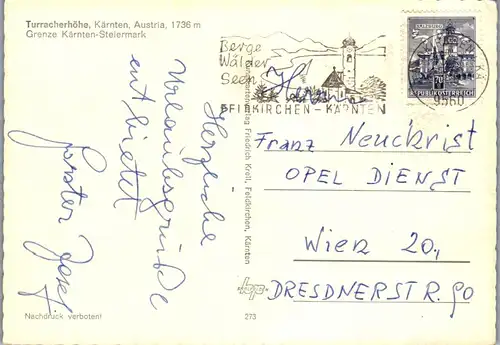 Turracherhöhe, Kärnten, Austria, 1736 m
Grenze Kärnten-Steiermark
Berge
Wälder
Seen
FELDKIRCHEN - KÄRNTEN
9560
REPUBLIK ÖSTERREICH
Herrn
Franz Neuckrist
OPEL DIENST
Wien 20.,
DRESDNERSTR. 90
Herzliche
Urlaubsgrüße
entbietet
Forster Josef
Kartenverlag Friedrich Kroll, Feldkirchen, Kärnten
Nachdruck verboten!
273